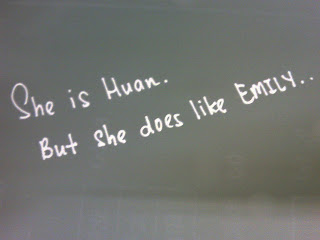 She is Huan.
But she does like EMILY..